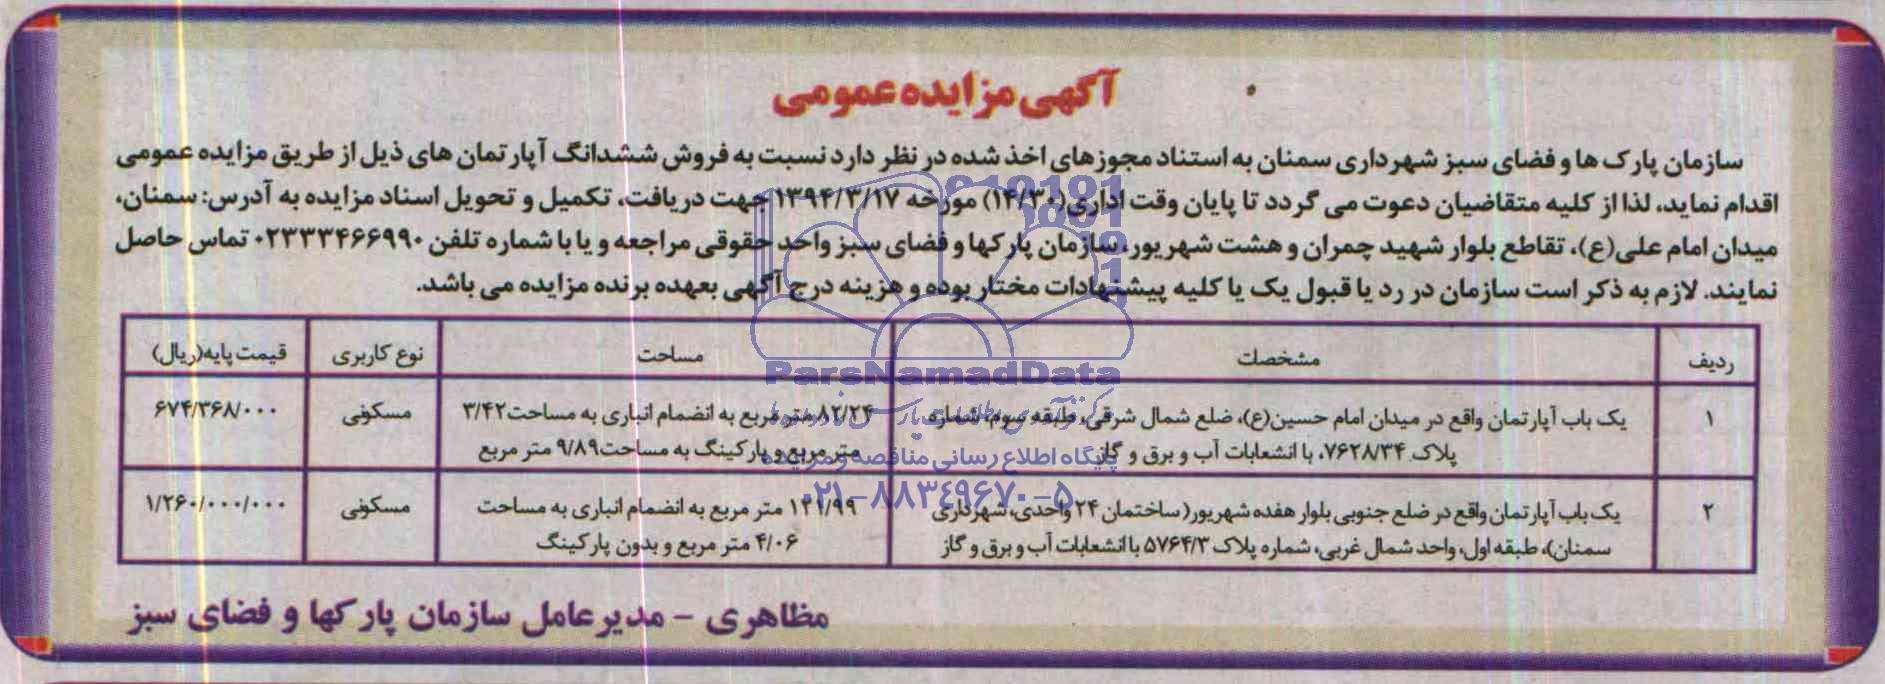 آگهی مزایده عمومی
سازمان پارک ها و فضای سبز شهرداری سمنان به استناد مجوزهای اخذ شده در نظر دارد نسبت به فروش ششدانگ آپارتمان های ذیل از طریق مزایده عمومی
اقدام نماید، لذا از کلیه متقاضیان دعوت می گردد تا پایان وقت اداری(۱۴/۳۰) مورخه ۱۳۹۴/۳/۱۷ جهت دریافت، تکمیل و تحویل اسناد مزایده به آدرس: سمنان،
میدان امام علی(ع)، تقاطع بلوار شهید چمران و هشت شهریور، سازمان پارکها و فضای سبز واحد حقوقی مراجعه و یا با شماره تلفن ۰۲۳۳۳۴۶۶۹۹۰ تماس حاصل
نمایند. لازم به ذکر است سازمان در رد یا قبول یک یا کلیه پیشنهادات مختار بوده و هزینه درج آگهی بعهده برنده مزایده می باشد.
ردیف مشخصات مساحت نوع کاربری قیمت پایه(ریال)
۱ یک باب آپارتمان واقع در میدان امام حسین(ع)، ضلع شمال شرقی، طبقه سوم، شماره ۸۲/۲۴ متر مربع به انضمام انباری به مساحت۳/۴۲ مسکونی ۶۷۴/۳۶۸/۰۰۰
پلاک ۷۶۲۸/۳۴، با انشعابات آب و برق و گاز متر مربع و پارکینگ به مساحت۹/۸۹ متر مربع
۲ یک باب آپارتمان واقع در ضلع جنوبی بلوار هفده شهریور( ساختمان ۲۴ واحدی، شهرداری ۱۲۱/۹۹ متر مربع به انضمام انباری به مساحت مسکونی ۱/۲۶۰/۰۰۰/۰۰۰
سمنان)، طبقه اول، واحد شمال غربی، شماره پلاک ۵۷۶۴/۳ با انشعابات آب و برق و گاز ۴/۰۶ متر مربع و بدون پارکینگ
مظاهری - مدیرعامل سازمان پارکها و فضای سبز
ParsNamadData
پایگاه اطلاع رسانی مناقصه و مزایده
۰۲۱-۸۸۳۴۹۶۷۰-۵